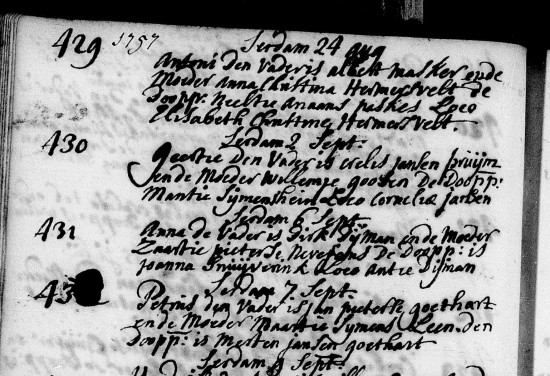 429 1757 Serdam 24 aug
Antoni den Vader is albert masker ende
Moeder anna Christina Hermersvelt de
Doopp: Neeltie paskes Loco
Elisabeth Christine Hermersvelt.
430 Serdam 2 Sept:
geertie Den Vader is crelis jansen
ende Moeder Willemje goosen De Doopp:
Mantie Sijmenshein Loco Cornelia jansen
Serdam 6 Sept.
431 Anna de Vader is Dirk Sijman ende Moeder
Zaartie pieterse De Doopp: is
joanna Loco antie Dijman
Serdam 7. Sept.
43
Petrus den Vader is jan pieterse goethart
ende Moeder Maartie Sijmens Leen. den
Doopp: is Merten jansen goethart
Serdam Sept: